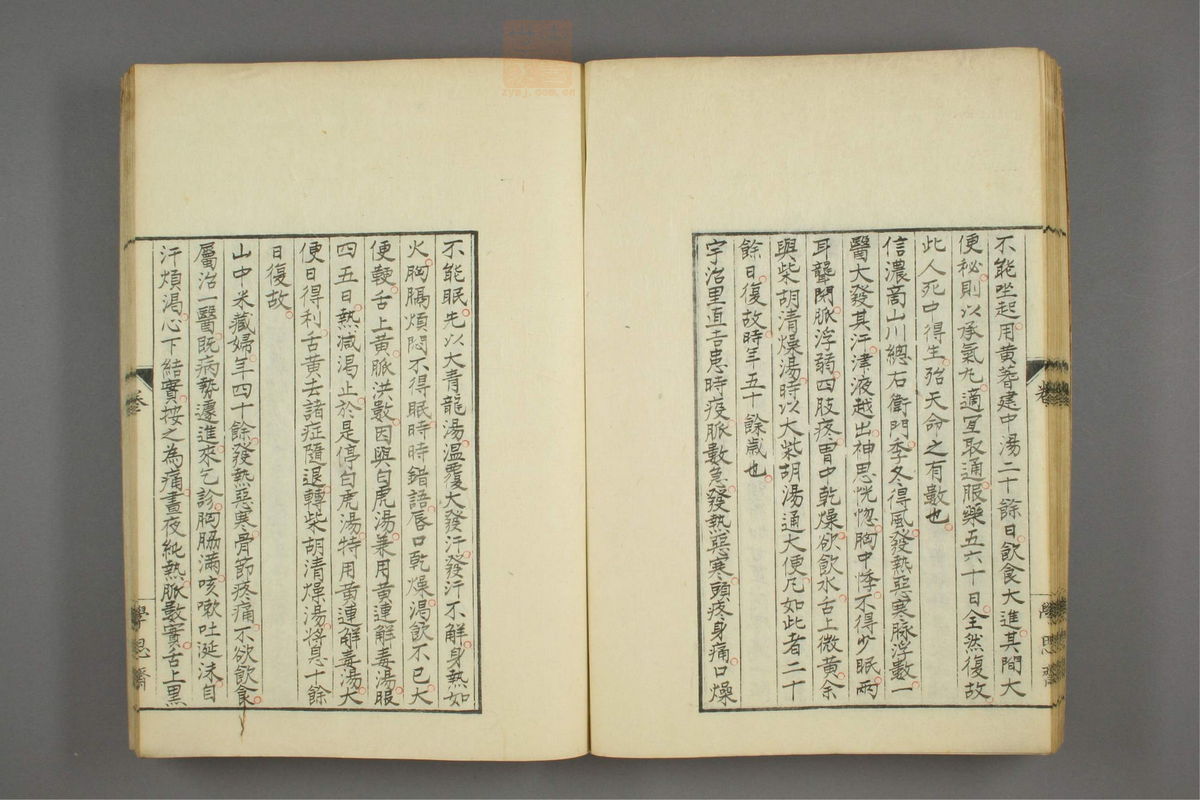 不能坐起用黄蓍建中湯二十餘日飲食大進其間大
便秘則以承氣丸適宜取通服藥五六十日全然復故
此人死中得生殆天命之有數也
信濃高山川總右衛門季冬得風發熱惡寒脉浮數一
醫大發其汗津液越出神思恍惚胸中悸不得少眠兩
耳聾閉脈浮弱四肢疼胃中乾燥欲飲水舌上微黄余
與柴胡清燥湯時以大柴胡湯通大便凡如此者二十
餘日復故時年五十餘歳也
宇治里直吉患時疫脈數急發熱惡寒頭疼身痛口燥
卷
學思齋
不能眠先以大青龍湯温覆大發汗發汗不解身熱如
火胸膈煩悶不得眠時時錯語唇口乾燥渴飲不已大
便鞕舌上黄脈洪數因與白虎湯兼用黄連解毒湯服
四五日熱减渴止於是停白虎湯特用黄連解毒湯大
便日得利舌黄去諸症隨退轉柴胡清燥湯將息十餘
日復故
山中米藏婦年四十餘發熱惡寒骨節疼痛不欲飲食
屬治一醫既病勢遽進來乞診胸脇滿咳嗽吐涎沫自
汗煩渴心下結實按之為痛晝夜純熱脈數實舌上黑
卷
學思齋
zysj.com.cn